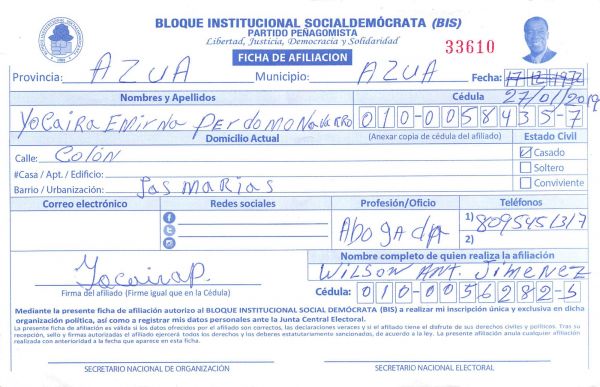 BLOQUE INSTITUCIONAL SOCIALDEMÓCRATA (BIS)
PARTIDO PEÑAGOMISTA
Libertad, Justicia, Democracia y Solidaridad
33610
FICHA DE AFILIACION
Provincia: AZUA Municipio: AZUA Fecha: 17/12/1972
27/01/2019
Nombres y Apellidos Cédula
Yocaira Emirna Perdomo Navarro 010-0058435-7
Domicilio Actual (Anexar copia de cédula del afiliado) Estado Civil
Calle: Colón Casado
#Casa / Apt. / Edificio: Soltero
Barrio / Urbanización: Las Marias Conviviente
Correo electrónico Redes sociales Profesión/Oficio Teléfonos
Abogada 1) 8095451317
2)
YocairaP. Nombre completo de quien realiza la afiliación
WILSON ANT. JIMENEZ
Firma del afiliado (Firme igual que en la Cédula) Cédula: 010-0056282-5
Mediante la presente ficha de afiliación autorizo al BLOQUE INSTITUCIONAL SOCIAL DEMÓCRATA (BIS) a realizar mi inscripción única y exclusiva en dicha
organización política, así como a registrar mis datos personales ante la Junta Central Electoral.
La presente ficha de afiliación es válida si los datos ofrecidos por el afiliado son correctos, las declaraciones veraces y si el afiliado tiene el disfrute de sus derechos civiles y políticos. Tras su
recepción, sello y firmas autorizadas el afiliado ejercerá todos los derechos y los deberes estatutariamente sancionados, de acuerdo a la ley. La presente afiliación anula cualquier afiliación
realizada con anterioridad a la fecha que aparece en esta ficha.
SECRETARIO NACIONAL DE ORGANIZACIÓN SECRETARIO NACIONAL ELECTORAL